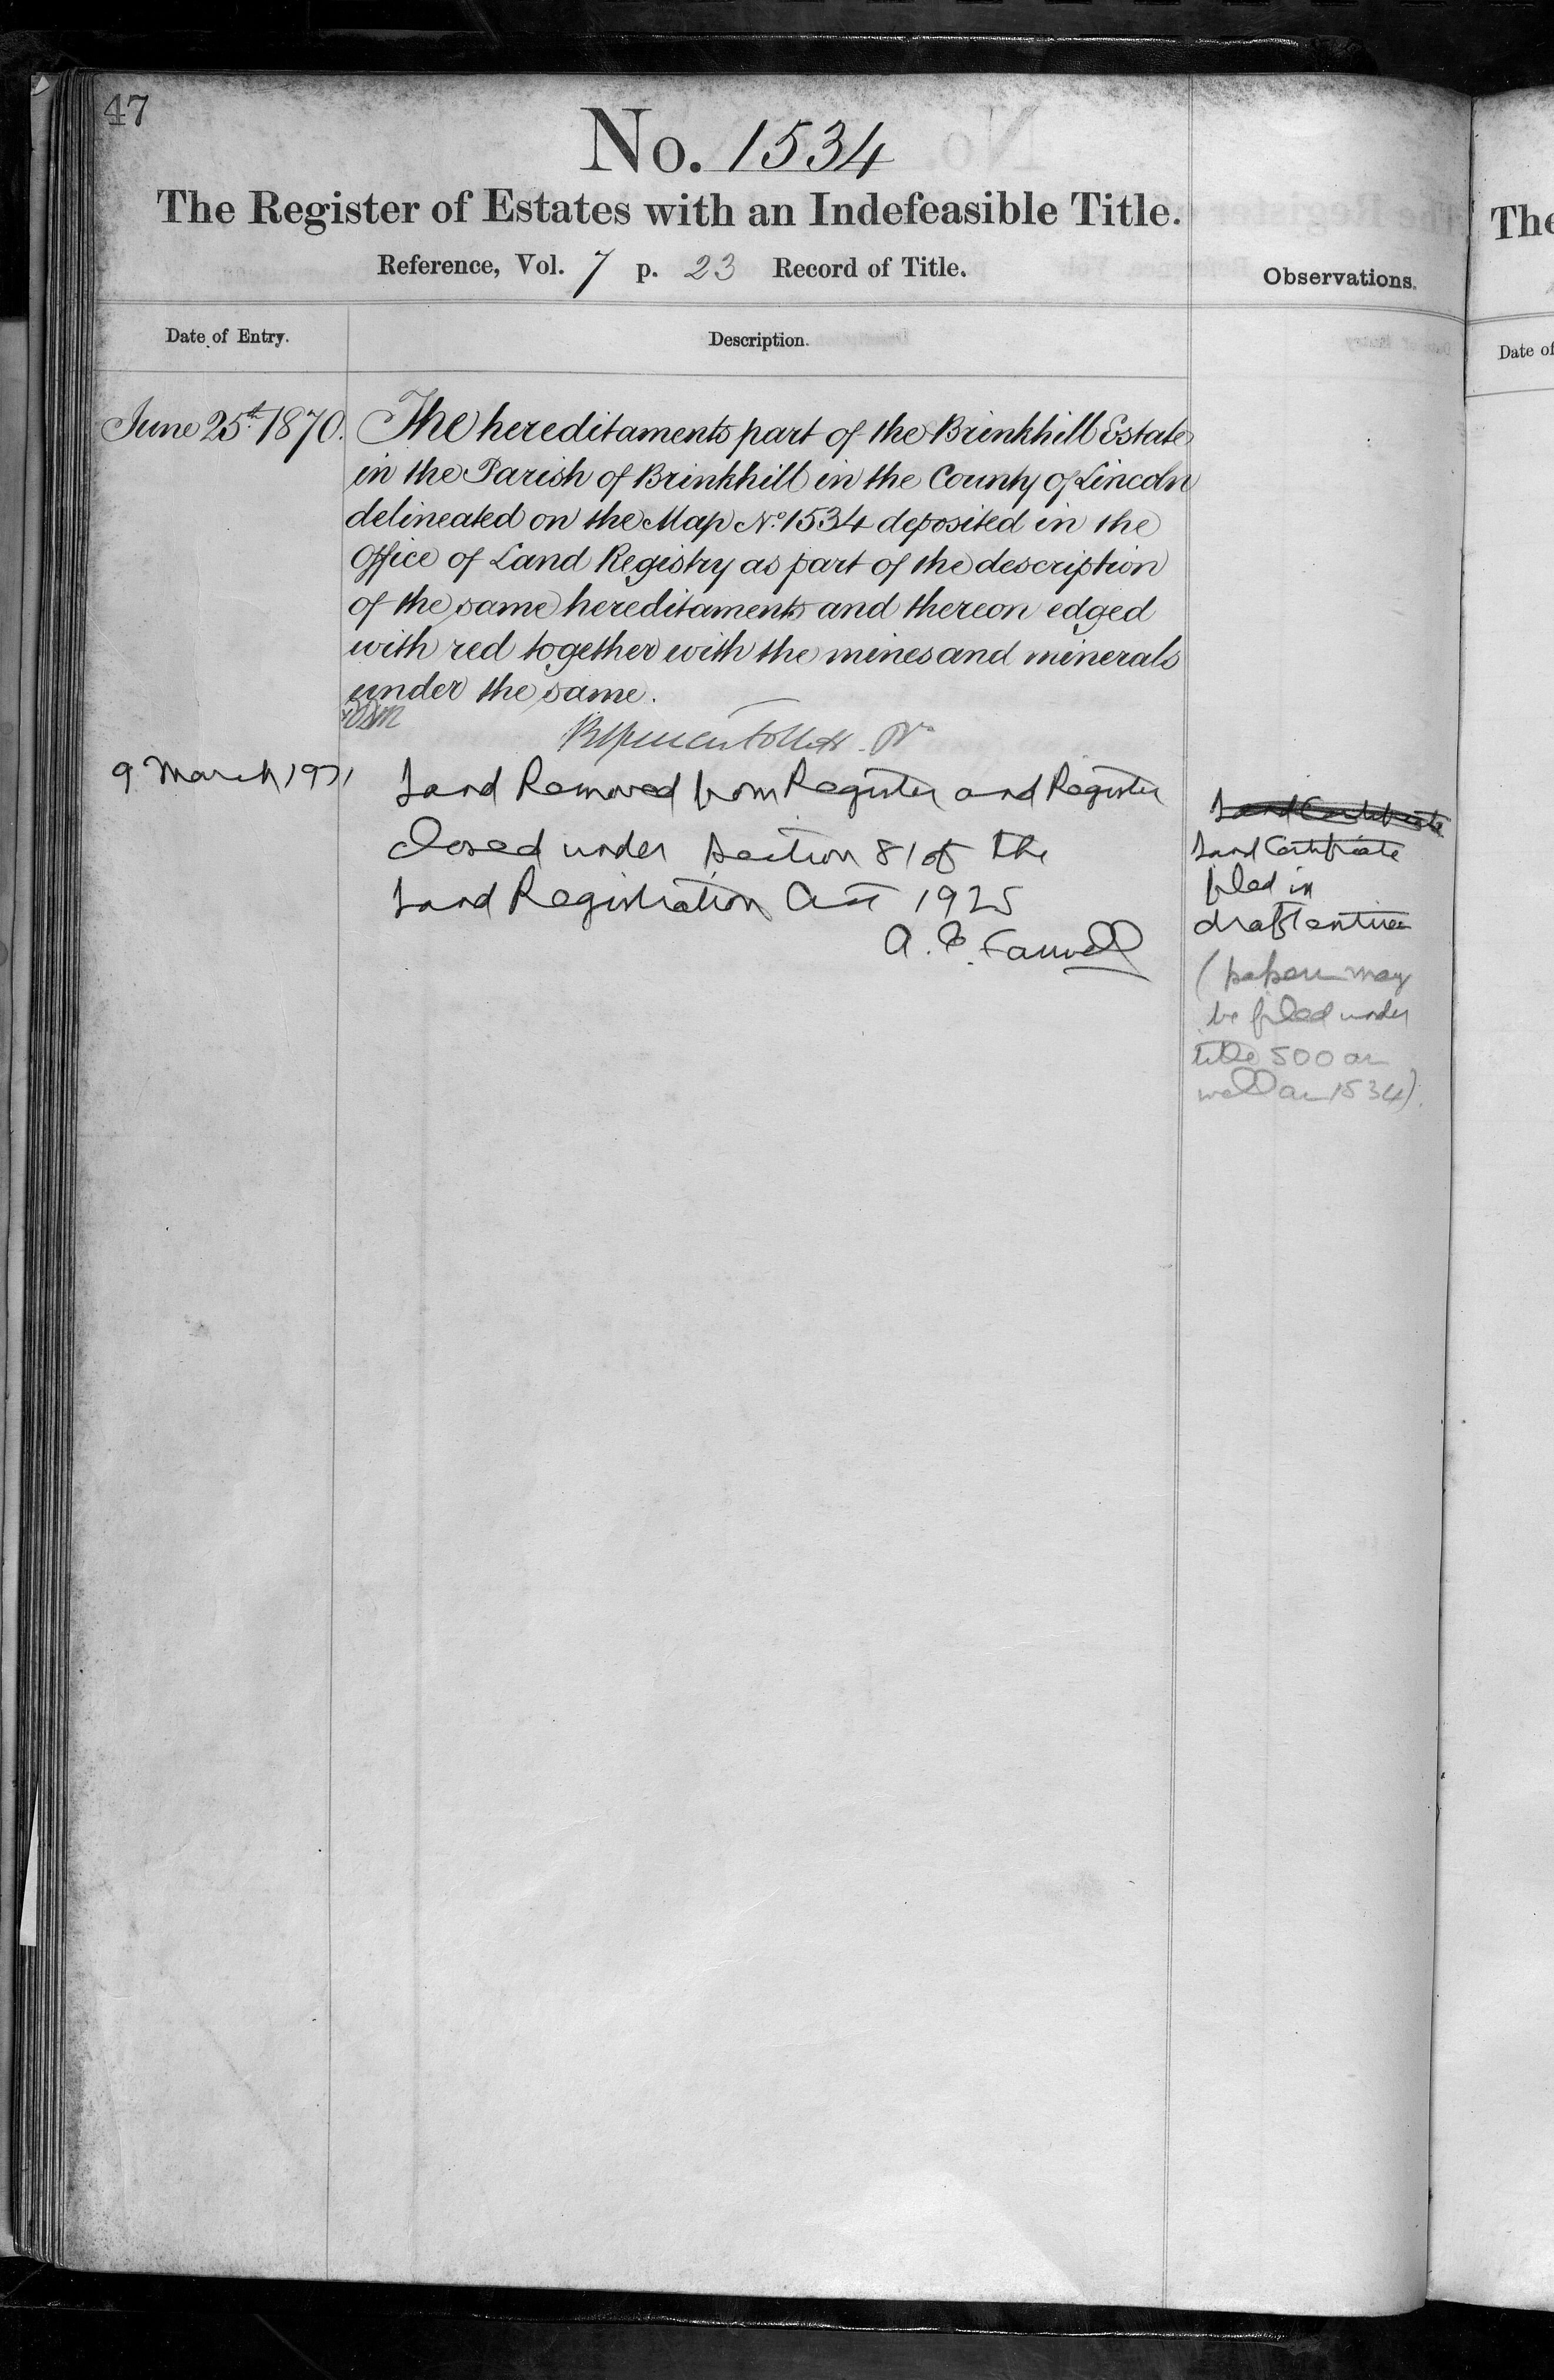 47
No. 1534
The Register of Estates with an Indefeasible Title.
Reference, Vol. 7 p. 23 Record of Title.
Observations.
Date of Entry.
Description.
June 25th 1870.
The hereditaments part of the Brinkhill Estate
in the Parish of Brinkhill in the County of Lincoln
delineated on the Map No. 1534 deposited in the
Office of Land Registry as part of the description
of the same hereditaments and thereon edged
with red together with the mines and minerals
under the same.
9 March 1971
Land Removed from Register and Register
closed under section 81 of the
Land Registration Act 1925
Land Certificate
Land Certificate
filed in
draft entries
(papers may
be filed under
title 500 as
well as 1534).
The
Date of